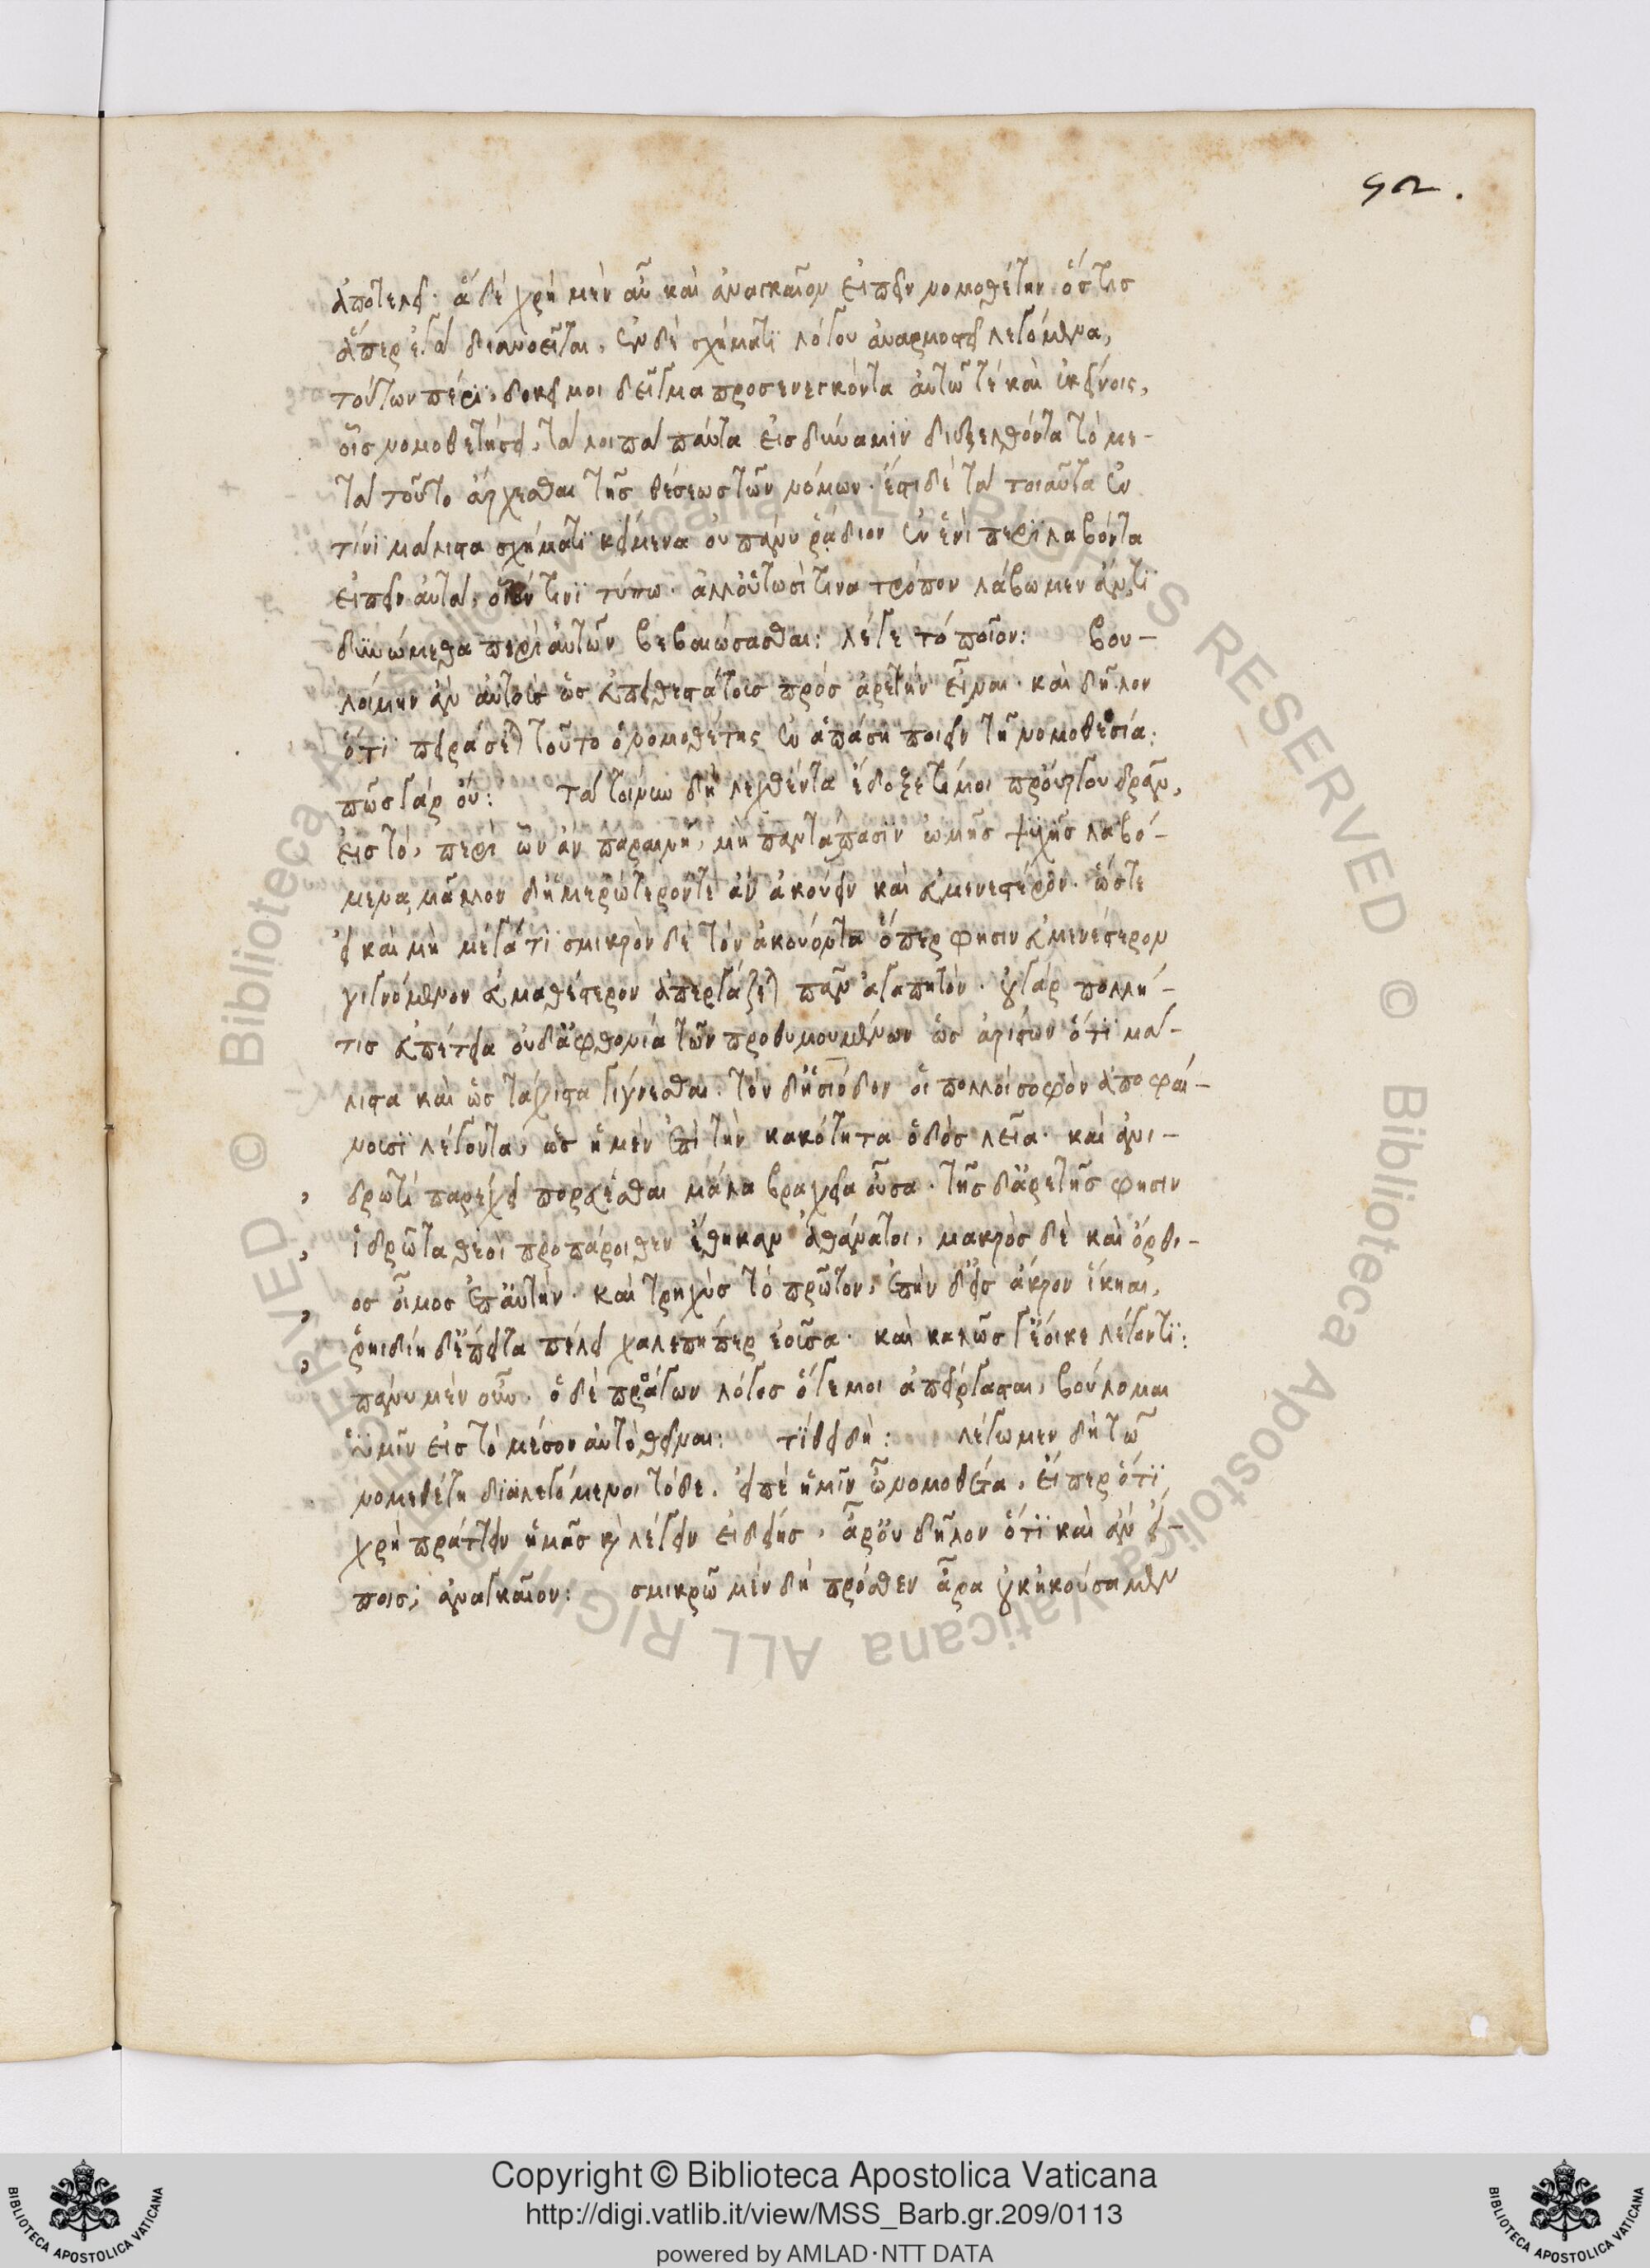 92.
ἀποτελεῖ· ἃ δὲ χρὴ μὲν αὖ καὶ ἀναγκαῖον εἰπεῖν νομοθέτην ὅστις
ἅπερ ἐγὼ διανοεῖται, ἐν δὲ σχήματι νόμου ἀναρμοστεῖ λεγόμενα,
τούτων πέρι δοκεῖ μοι δεῖγμα προσενεγκόντα αὐτῷ τὲ καὶ ἐκείνοις,
οἷς νομοθετήσει, τὰ λοιπὰ πάντα εἰς δύναμιν διεξελθόντα τὸ με-
τὰ τοῦτο ἄρχεσθαι τῆς θέσεως τῶν νόμων· ἔστι δὲ τὰ τοιαῦτα ἐν
τίνι μάλιστα σχήματι κείμενα οὐ πάνυ ῥάδιον ἐν ἑνὶ περιλαβόντα
εἰπεῖν αὐτὰ, οἷόν τινι τύπω· ἀλλ' οὑτωσί τινα τρόπον λάβωμεν ἄν τι
δυνώμεθα περὶ αὐτῶν βεβαιώσασθαι: λέγε τὸ ποῖον: βου-
λοίμην ἂν αὐτοὺς ὡς εὐπειθεστάτους πρὸς ἀρετὴν εἶναι· καὶ δῆλον
ὅτι πειράσεται τοῦτο ὁ νομοθέτης ἐν ἁπάση ποιεῖν τῆ νομοθεσία:
πῶς γὰρ οὔ: τὰ τοίνυν δὴ λεχθέντα ἔδοξέ τί μοι προύργου δρᾶν,
εἰς τὸ, περὶ ὧν ἂν παραινῆ, μὴ παντάπασιν ὠμῆς ψυχῆς λαβό-
μενα μᾶλλον δ' ἡμερώτερόν τε ἂν ἀκούειν καὶ εὐμενέστερον· ὥστε
εἰ καὶ μὴ μέγά τι σμικρὸν δὲ τὸν ἀκούοντα ὅπερ φησὶν εὐμενέστερον
γιγνόμενον εὐμαθέστερον ἀπεργάζεται πᾶν ἀγαπητόν· οὐ γὰρ πολλή-
τις εὐπέτεια οὐδ' ἀφθονία τῶν προθυμουμένων ὡς ἀρίστων ὅτι μά-
λιστα καὶ ὡς τάχιστα γίγνεσθαι. τὸν δ' ἡσίοδον οἱ πολλοὶ σοφὸν ἀποφαί-
νουσι λέγοντα, ὡς ἡ μὲν ἐπὶ τὴν κακότητα ὁδὸς λεία· καὶ ἀνι-
δρωτὶ παρέχει πορεύεσθαι μάλα βραχεῖα οὖσα· τῆς δ' ἀρετῆς φησὶν
ἱδρῶτα θεοὶ προπάροιθεν ἔθηκαν ἀθάνατοι, μακρὸς δὲ καὶ ὄρθι-
ος οἶμος ἐπ' αὐτήν· καὶ τρηχὺς τὸ πρῶτον, ἐπὴν δ' εἰς ἄκρον ἵκηαι,
ῥηιδίη δ' ἤπειτα πέλει χαλεπή περ ἐοῦσα· καὶ καλῶς γ' ἔοικε λέγοντι:
πάνυ μὲν οὖν· ὁ δὲ προάγων λόγος ὅ γέ μοι ἀπείργασται, βούλομαι
ὑμῖν εἰς τὸ μέσον αὐτὸ θεῖναι: τίθει δή: λέγωμεν δὴ τῶ
νομοθέτη διαλεγόμενοι τόδε. εἰπὲ ἡμῖν ὦ νομοθέτα, εἴπερ ὅτι
χρὴ πράττειν ἡμᾶς καὶ λέγειν εἰδείης, ἆρ' οὐ δῆλον ὅτι καὶ ἂν εἴ-
ποις; ἀναγκαῖον: σμικρῶ μὲν δὴ πρόσθεν ἆρα οὐκ ἠκούσαμεν
Copyright © Biblioteca Apostolica Vaticana
http://digi.vatlib.it/view/MSS_Barb.gr.209/0113
powered by AMLAD·NTT DATA